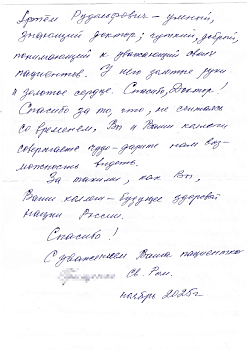 Артём Рудольфович – умный,
знающий доктор; чуткий, добрый,
понимающий и уважающий своих
пациентов. У него золотые руки
и золотое сердце. Спасибо, Доктор!
Спасибо за то, что, не считаясь
со временем, Вы и Ваши коллеги
совершаете чудо – дарите нам воз-
можность видеть.
За такими, как Вы,
Ваши коллеги – будущее здоровой
нации России.
Спасибо!
С уважением Ваша пациентка
ноябрь 2025г